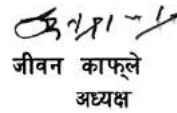 जीवन काफ्‌ले
अध्यक्ष